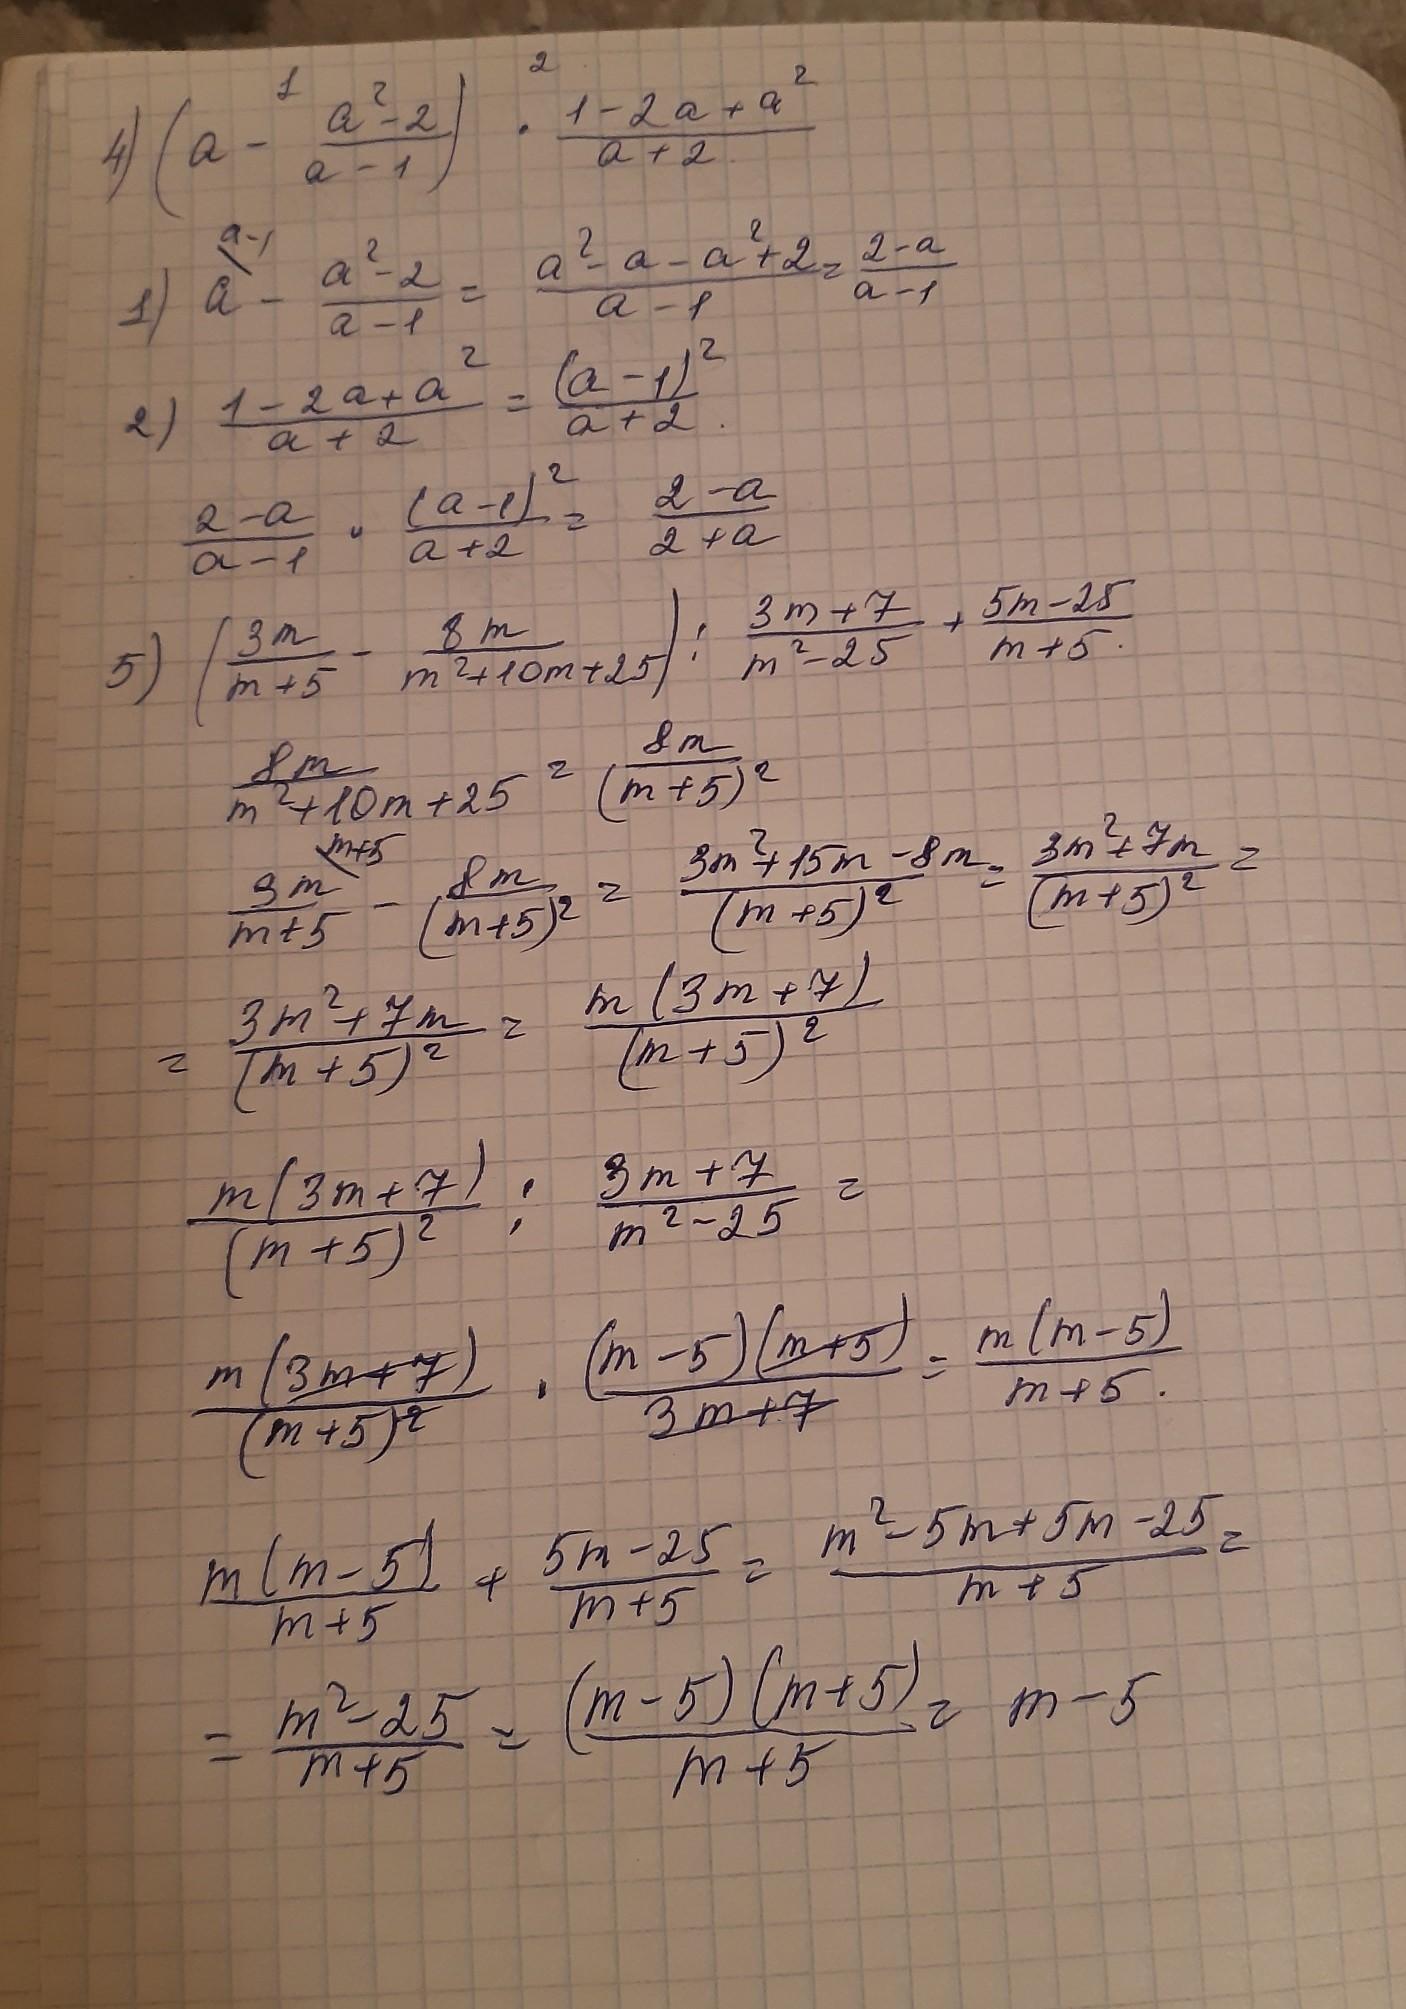 4) (a - (a² - 2)/(a - 1)) · (1 - 2a + a²)/(a + 2)
1) a - (a² - 2)/(a - 1) = (a² - a - a² + 2)/(a - 1) = (2 - a)/(a - 1)
2) (1 - 2a + a²)/(a + 2) = (a - 1)²/(a + 2).
(2 - a)/(a - 1) · (a - 1)²/(a + 2) = (2 - a)/(2 + a)
5) (3m/(m + 5) - 8m/(m² + 10m + 25)) : (3m + 7)/(m² - 25) + (5m - 25)/(m + 5).
8m/(m² + 10m + 25) = 8m/(m + 5)²
3m/(m + 5) - 8m/(m + 5)² = (3m² + 15m - 8m)/(m + 5)² = (3m² + 7m)/(m + 5)² =
= (3m² + 7m)/(m + 5)² = m(3m + 7)/(m + 5)²
m(3m + 7)/(m + 5)² : (3m + 7)/(m² - 25) =
m(3m + 7)/(m + 5)² · (m - 5)(m + 5)/(3m + 7) = m(m - 5)/(m + 5).
m(m - 5)/(m + 5) + (5m - 25)/(m + 5) = (m² - 5m + 5m - 25)/(m + 5) =
= (m² - 25)/(m + 5) = (m - 5)(m + 5)/(m + 5) = m - 5